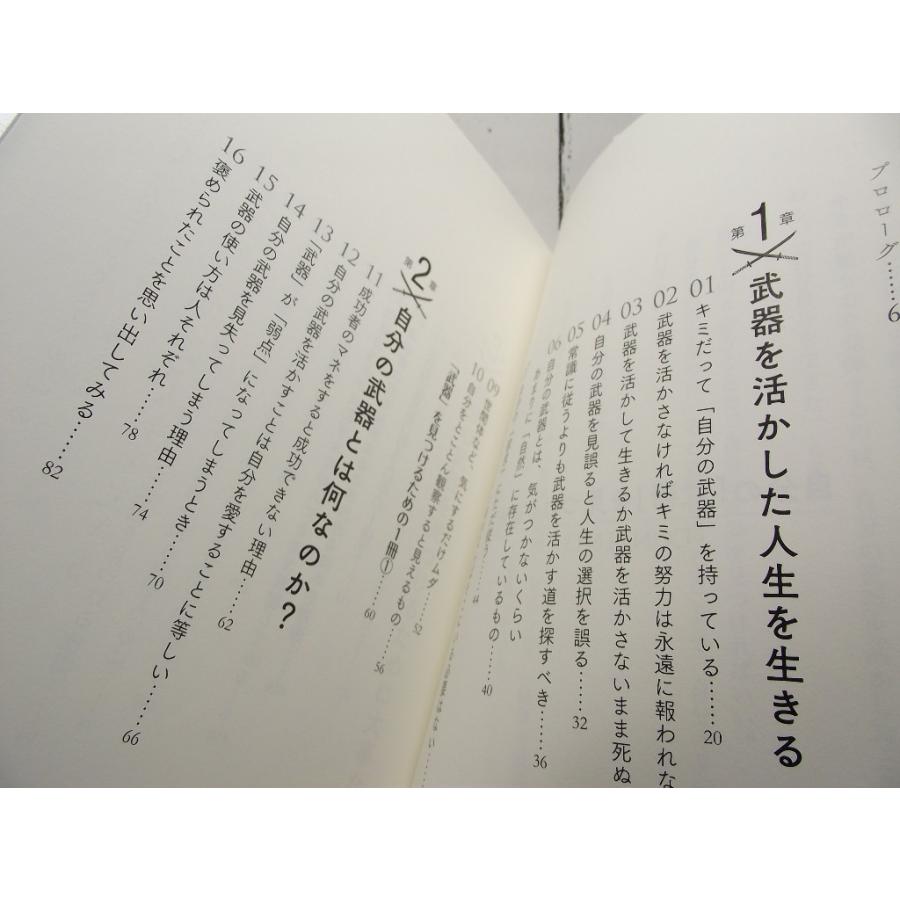 プロローグ……6
第1章 武器を活かした人生を生きる
01 キミだって「自分の武器」を持っている……20
02 武器を活かさなければキミの努力は永遠に報われな
03 武器を活かして生きるか武器を活かさないまま死ぬ
04 自分の武器を見誤ると人生の選択を誤る……32
05 常識に従うよりも武器を活かす道を探すべき……36
06 自分の武器とは、気がつかないくらい
あまりに「自然」に存在しているもの……40
09 世間体など、気にするだけムダ……52
10 自分をとことん観察すると見えるもの……56
「武器」を見つけるための1冊①……60
第2章 自分の武器とは何なのか?
11 成功者のマネをすると成功できない理由……62
12 自分の武器を活かすことは自分を愛することに等しい……66
13 「武器」が「弱点」になってしまうとき……70
14 自分の武器を見失ってしまう理由……74
15 武器の使い方は人それぞれ……78
16 褒められたことを思い出してみる……82